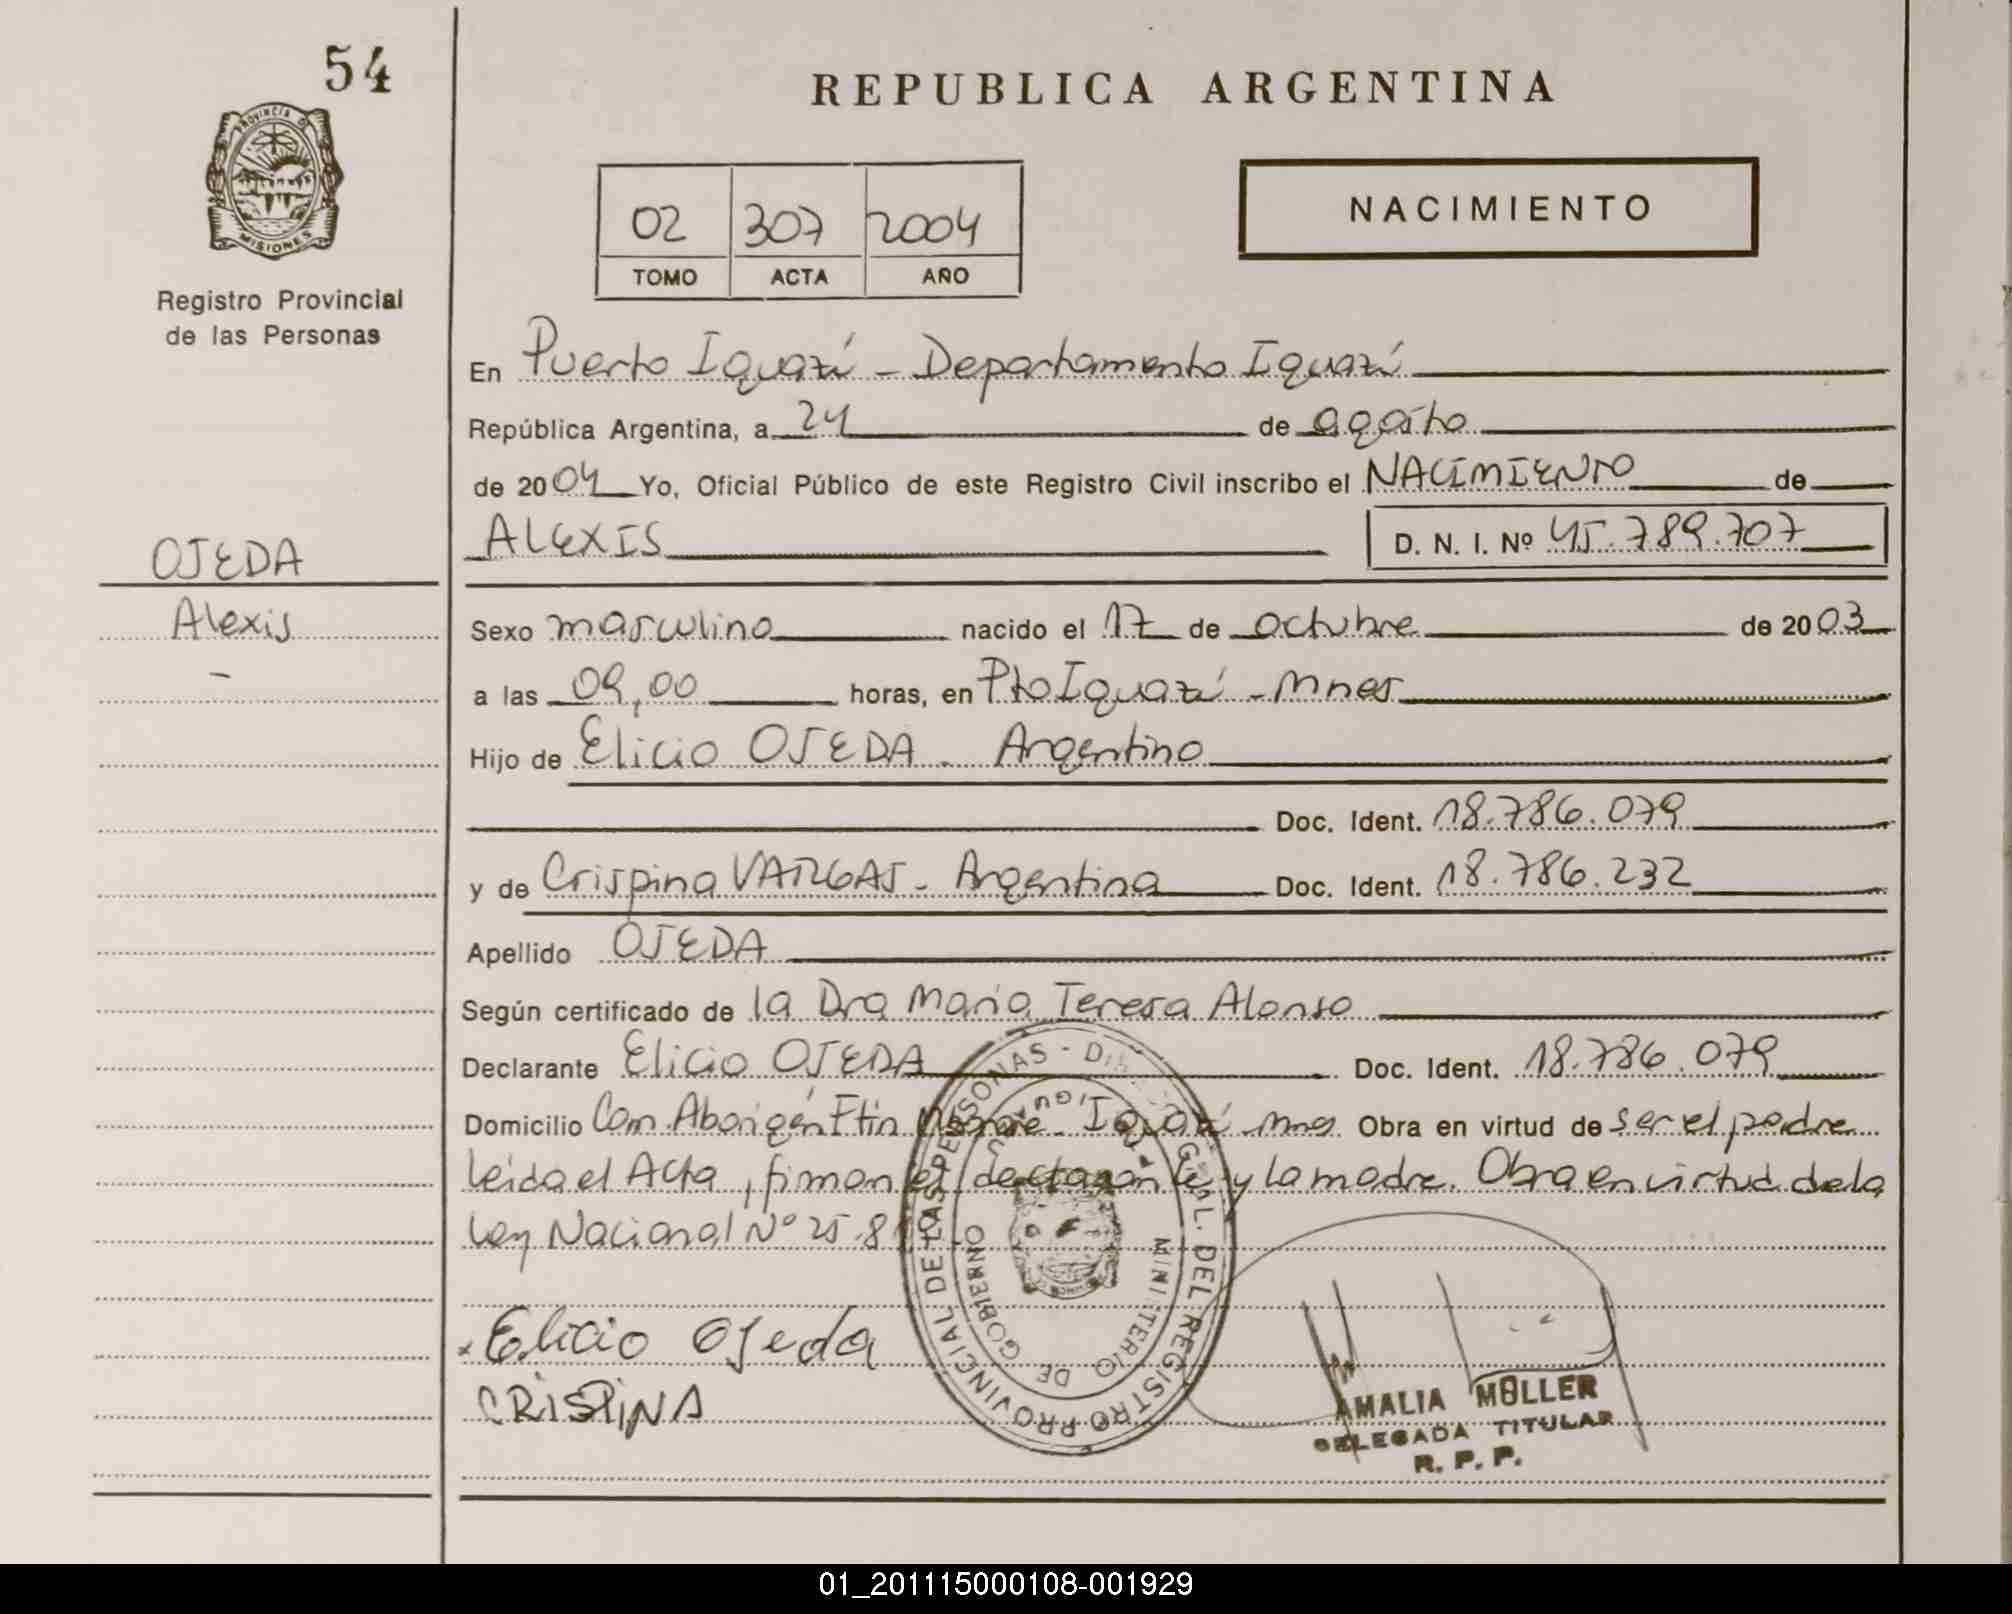 54
REPUBLICA ARGENTINA
PROVINCIA D
MISIONES
Registro Provincial
de las Personas
NACIMIENTO
02 307 2004
TOMO ACTA AÑO
En Puerto Iguazú - Departamento Iguazú
República Argentina, a 24 de agosto
de 2004 Yo, Oficial Público de este Registro Civil inscribo el NACIMIENTO de
ALEXIS D. N. I. Nº 45.789.707
OJEDA
Alexis
-
Sexo masculino nacido el 17 de octubre de 2003
a las 09,00 horas, en Pto Iguazú - Mnes
Hijo de Elicio OJEDA - Argentino
Doc. Ident. 18.786.079
y de Crispina VARGAS - Argentina Doc. Ident. 18.786.232
Apellido OJEDA
Según certificado de la Dra Maria Teresa Alonso
Declarante Elicio OJEDA Doc. Ident. 18.786.079
Domicilio Com. Aborigén Ftin Iguazú Mnes Obra en virtud de ser el padre
leída el Acta, firman el declarante y la madre. Obra en virtud de la
Ley Nacional Nº 25.8
Elicio Ojeda
CRISPINA
GRAL. DEL REGISTRO PROVINCIAL DE LAS PERSONAS
MINISTERIO DE GOBIERNO
AMALIA MULLER
DELEGADA TITULAR
R. P. P.
01_201115000108-001929